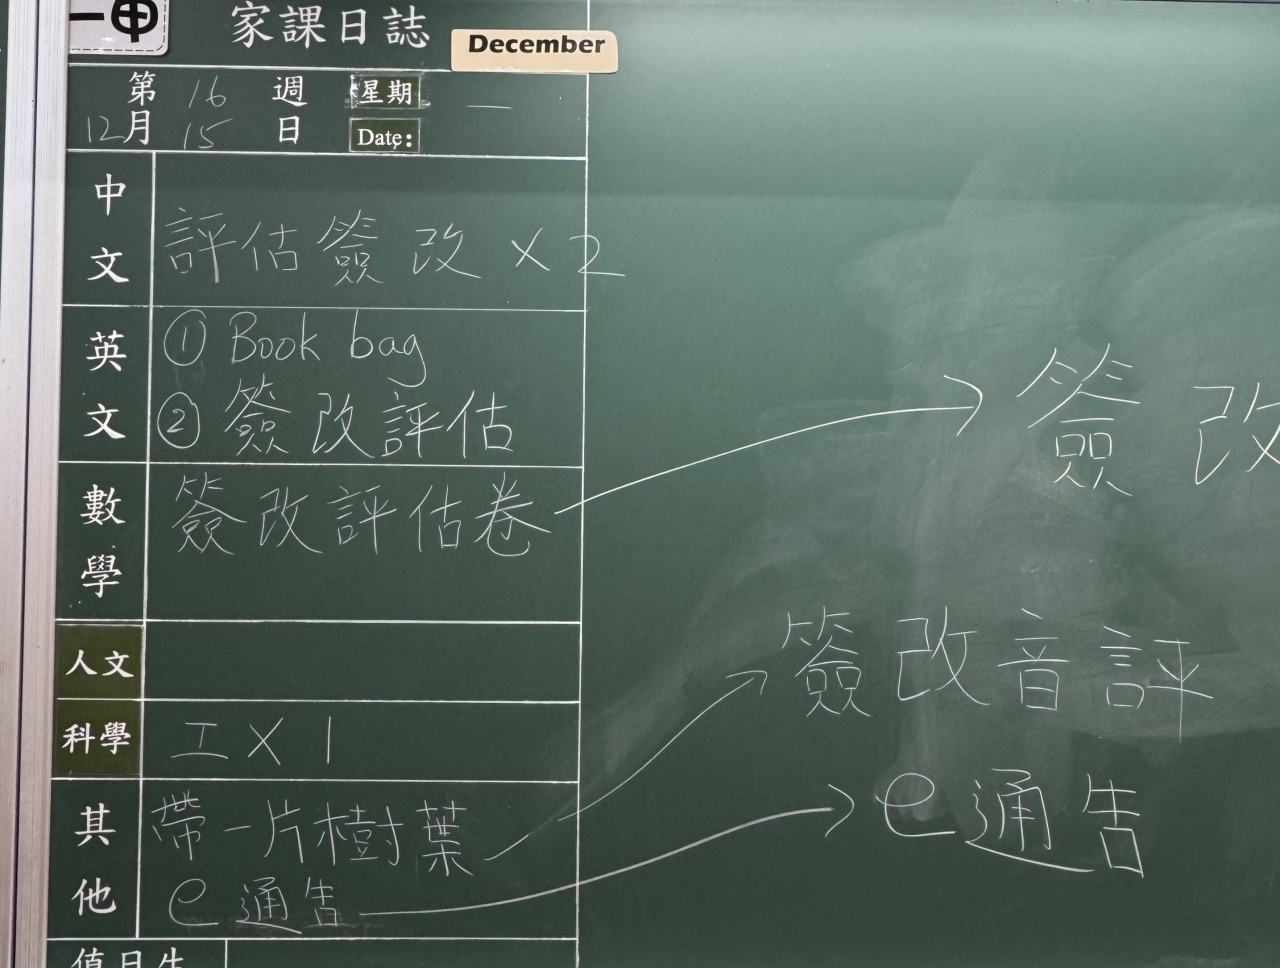 一甲
家課日誌
December
第 16 週 星期 一
12月 15 日 Date:
中文
評估簽改 ×2
英文
① Book bag
② 簽改評估
數學
簽改評估卷
簽改
人文
科學
工×1
其他
帶一片樹葉
簽改音評
e通告
e通告
值日生